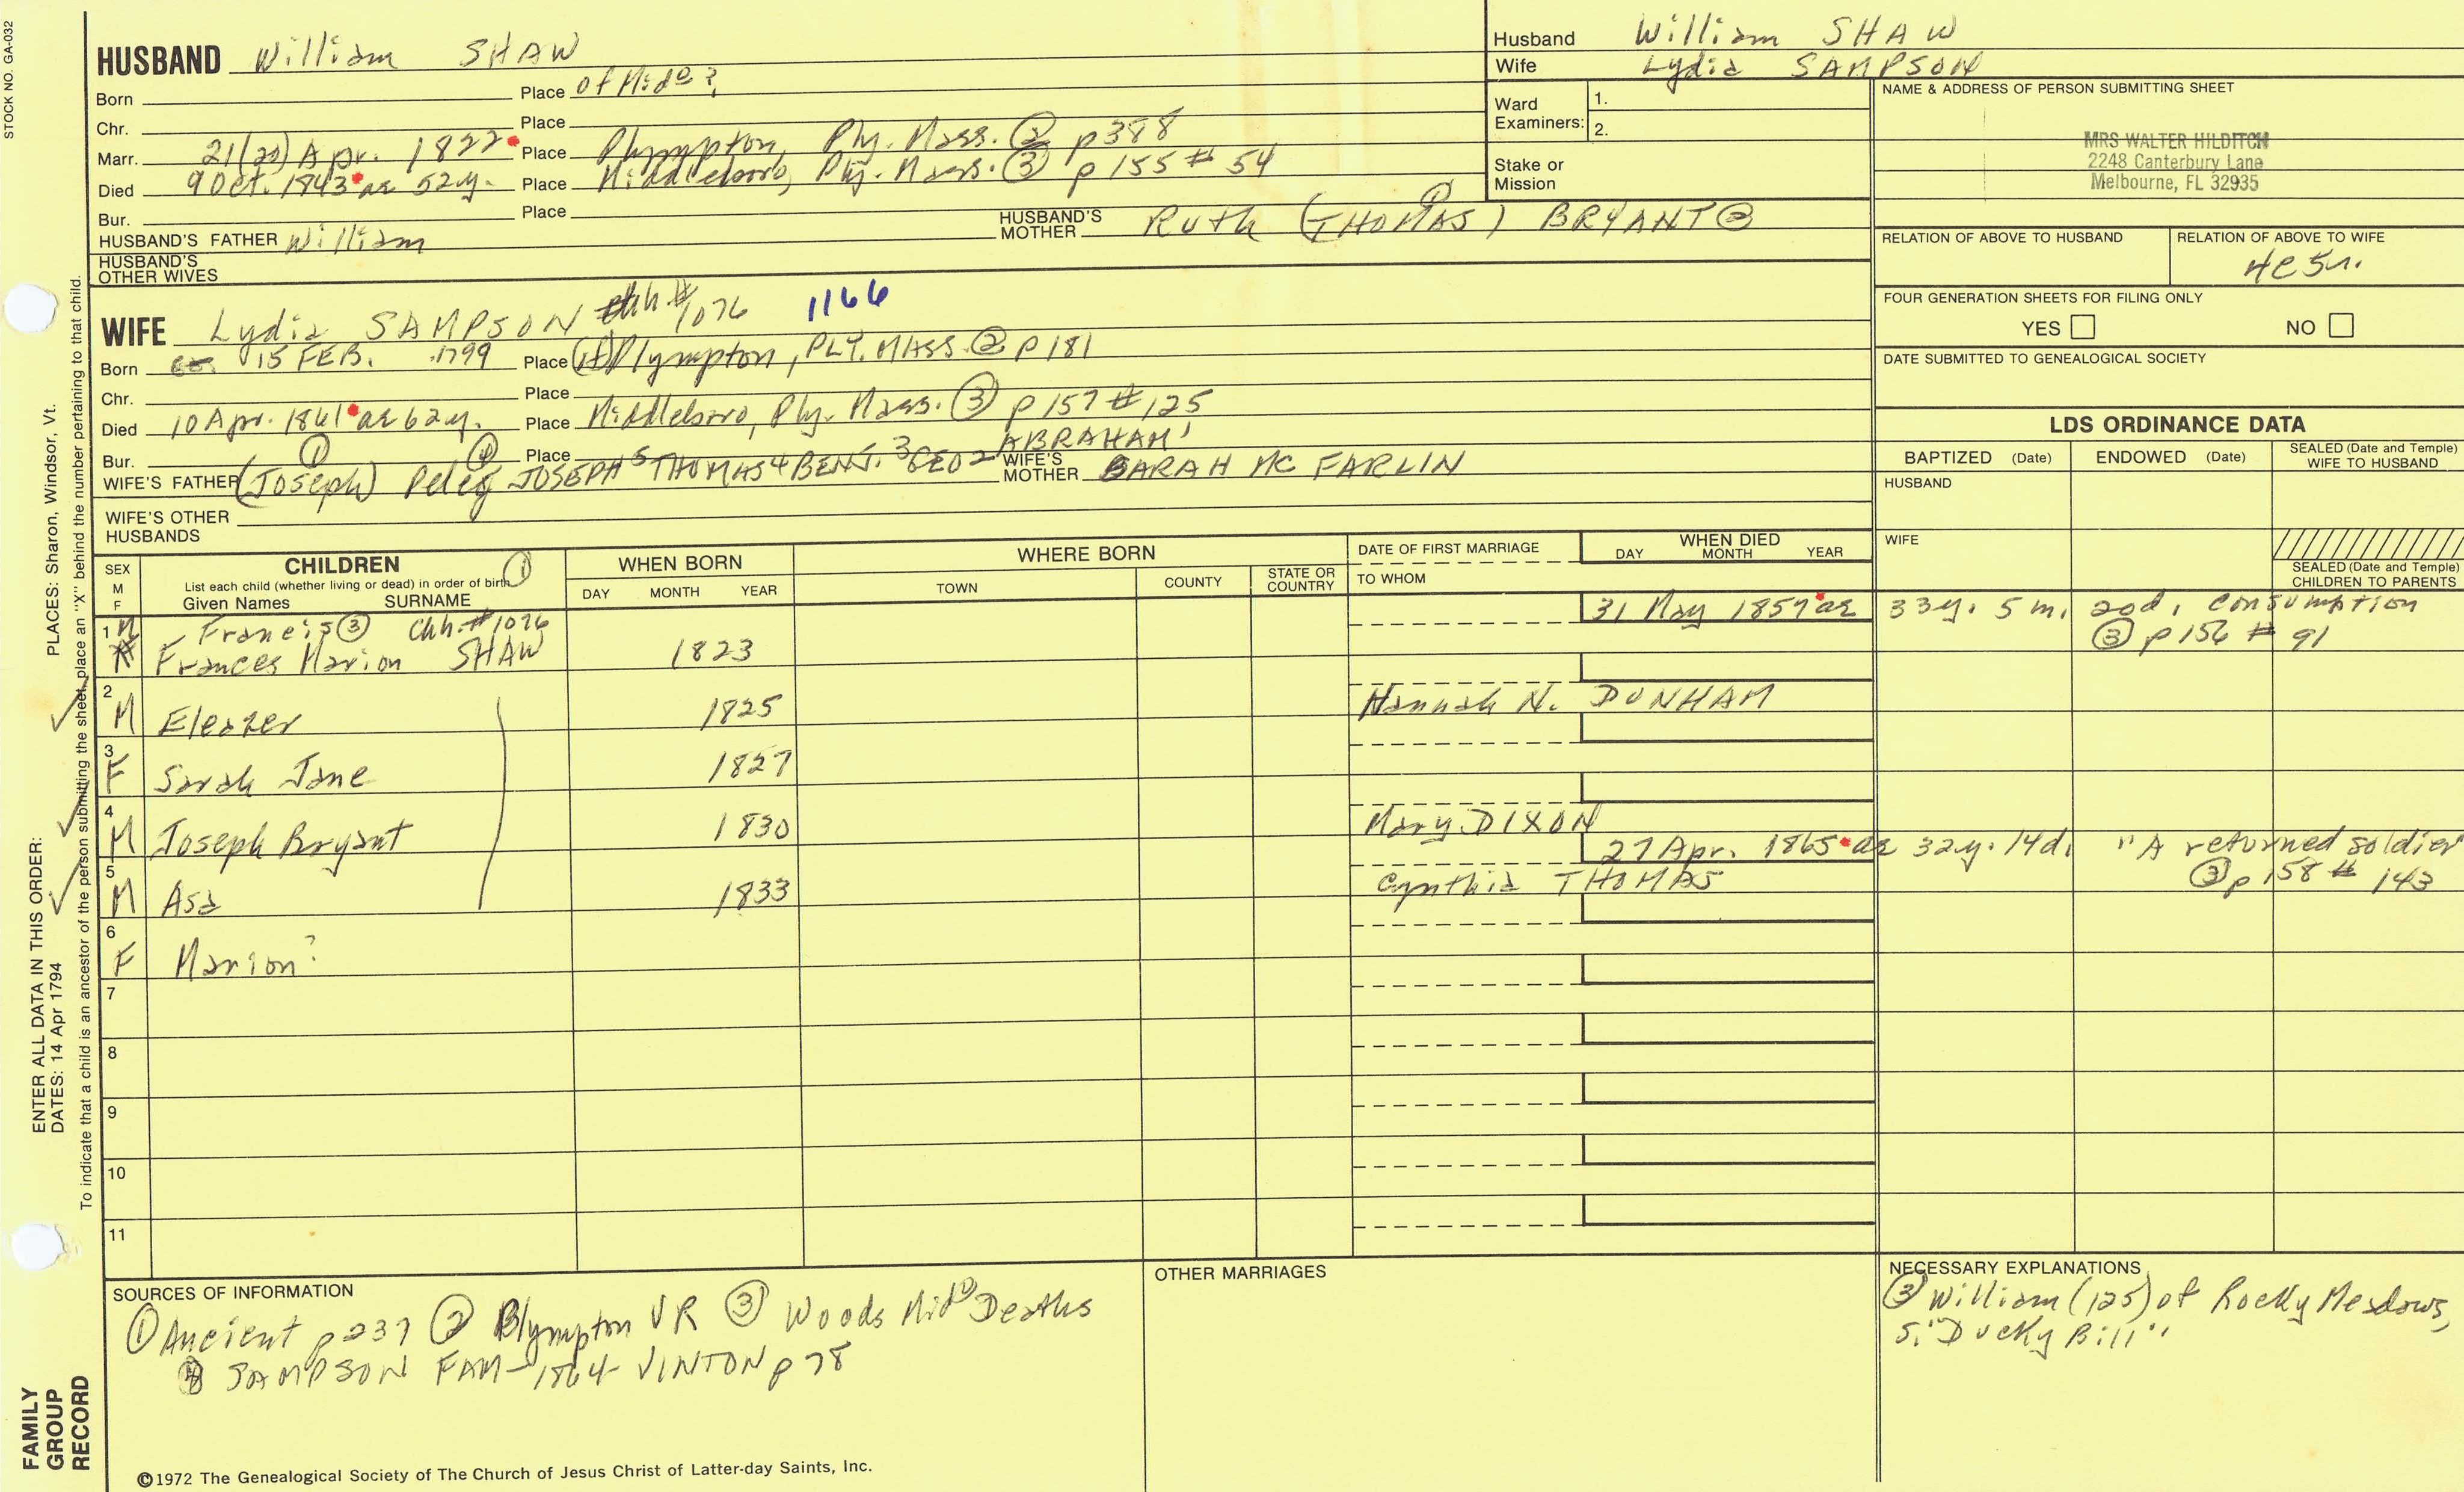 STOCK NO. GA-032
HUSBAND William SHAW
Born Place of Mido?
Chr. Place
Marr. 21(20) Apr. 1822 Place Plympton, Ply. Mass. ② p388
Died 9 Oct. 1843 ae 52y. Place Middleboro, Ply. Mass. ③ p 155 # 54
Bur. Place
HUSBAND'S FATHER William HUSBAND'S MOTHER Ruth (THOMAS) ① BRYANT ②
HUSBAND'S OTHER WIVES
Husband William SHAW
Wife Lydia SAMPSON
Ward Examiners: 1.
2.
Stake or Mission
NAME & ADDRESS OF PERSON SUBMITTING SHEET
MRS WALTER HILDITCH
2248 Canterbury Lane
Melbourne, FL 32935
RELATION OF ABOVE TO HUSBAND RELATION OF ABOVE TO WIFE
4C5r.
FOUR GENERATION SHEETS FOR FILING ONLY
YES NO
DATE SUBMITTED TO GENEALOGICAL SOCIETY
WIFE Lydia SAMPSON #1076 1166
Born 15 FEB. 1799 Place (of) Plympton, PLY. MASS. ② p 181
Chr. Place
Died 10 Apr. 1861 ae 62y. Place Middleboro, Ply. Mass. ③ p 157 # 125
Bur. Place ABRAHAM 1
WIFE'S FATHER (Joseph) ① Peleg ④ JOSEPH 5 THOMAS 4 BENJ. 3 GEO 2 WIFE'S MOTHER SARAH MC FARLIN
WIFE'S OTHER HUSBANDS
LDS ORDINANCE DATA
BAPTIZED (Date) ENDOWED (Date) SEALED (Date and Temple) WIFE TO HUSBAND
HUSBAND
WIFE
SEALED (Date and Temple) CHILDREN TO PARENTS
SEX M F
CHILDREN ①
List each child (whether living or dead) in order of birth
Given Names SURNAME
WHEN BORN
DAY MONTH YEAR
WHERE BORN
TOWN COUNTY STATE OR COUNTRY
DATE OF FIRST MARRIAGE
TO WHOM
WHEN DIED
DAY MONTH YEAR
1 M Francis ③ Chh. #1076 31 May 1857 ae 33y. 5 m. 20d. consumption
Frances Marion SHAW 1823 ③ p 156 # 91
2 M Eleazer 1825 Hannah N. DUNHAM
3 F Sarah Jane 1827
4 M Joseph Bryant 1830 Mary DIXON
5 M Asa 1833 27 Apr. 1865 ae 32y. 14d. "A returned soldier
Cynthia THOMAS ③ p 158 # 143
6 F Marion?
7
8
9
10
11
SOURCES OF INFORMATION
① Ancient p 237 ② Plympton VR ③ Woods Mido Deaths
④ SAMPSON FAM - 1864 - VINTON p 78
OTHER MARRIAGES
NECESSARY EXPLANATIONS
③ William (125) of Rocky Meadows,
s. "Ducky Bill"
©1972 The Genealogical Society of The Church of Jesus Christ of Latter-day Saints, Inc.
FAMILY GROUP RECORD
ENTER ALL DATA IN THIS ORDER:
DATES: 14 Apr 1794 PLACES: Sharon, Windsor, Vt.
To indicate that a child is an ancestor of the person submitting the sheet, place an "X" behind the number pertaining to that child.